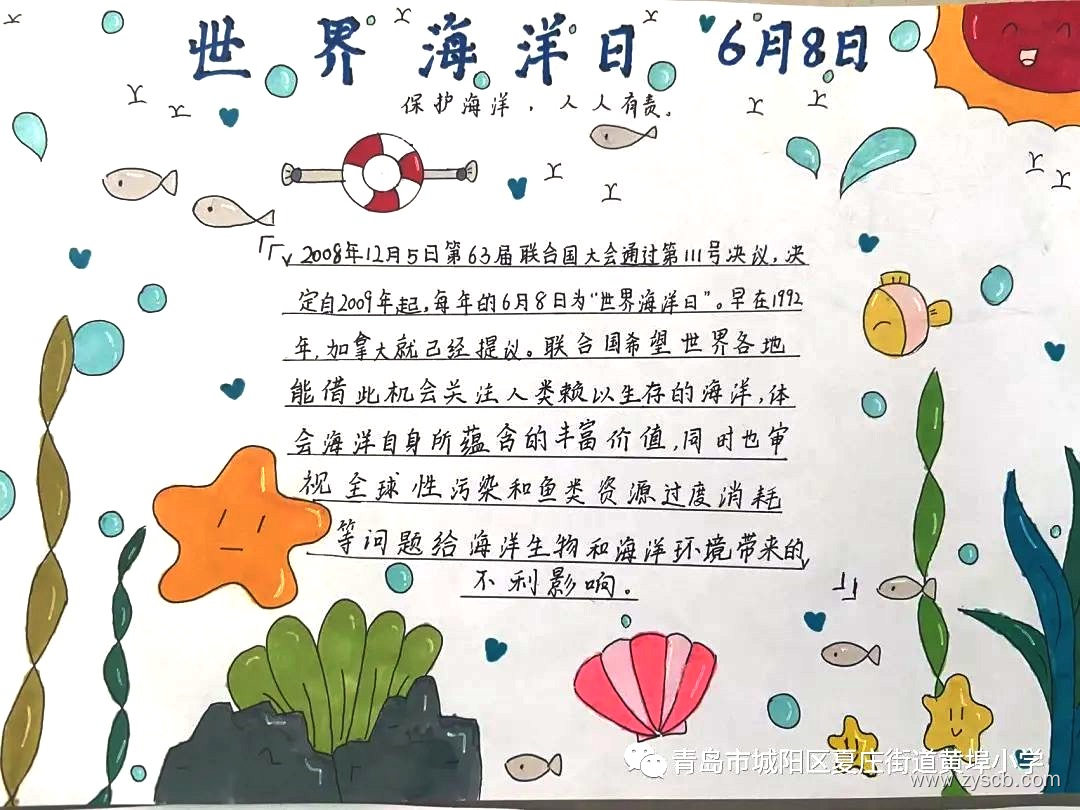 世界海洋日 6月8日
保护海洋，人人有责。
2008年12月5日第63届联合国大会通过第111号决议，决
定自2009年起，每年的6月8日为“世界海洋日”。早在1992
年，加拿大就已经提议。联合国希望世界各地
能借此机会关注人类赖以生存的海洋，体
会海洋自身所蕴含的丰富价值，同时也审
视全球性污染和鱼类资源过度消耗
等问题给海洋生物和海洋环境带来的
不利影响。
青岛市城阳区夏庄街道黄埠小学
www.zyscb.com